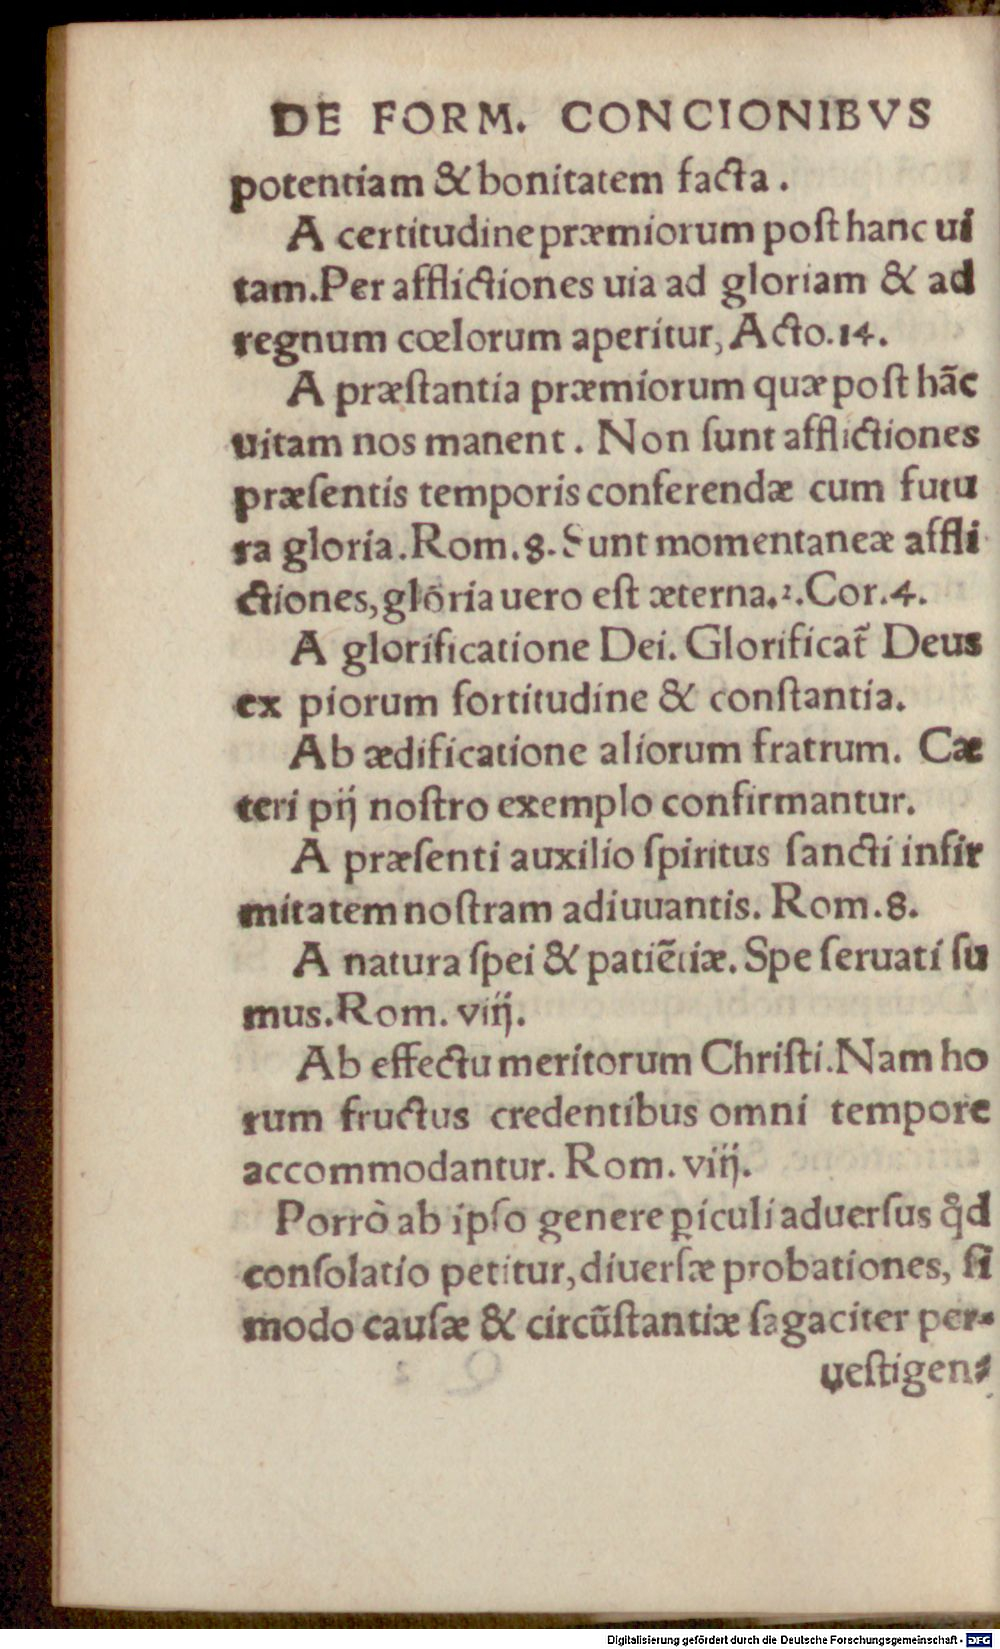 DE FORM. CONCIONIBVS
potentiam & bonitatem facta.
A certitudine præmiorum poſt hanc ui
tam. Per afflictiones uia ad gloriam & ad
regnum cœlorum aperitur, Acto. 14.
A præſtantia præmiorum quæ poſt hãc
uitam nos manent. Non ſunt afflictiones
præſentis temporis conferendæ cum futu
ra gloria. Rom. 8. Sunt momentaneæ affli
ctiones, gloria uero eſt æterna. 2. Cor. 4.
A glorificatione Dei. Glorificat̃ Deus
ex piorum fortitudine & conſtantia.
Ab ædificatione aliorum fratrum. Cæ
teri pij noſtro exemplo confirmantur.
A præſenti auxilio ſpiritus ſancti infir
mitatem noſtram adiuuantis. Rom. 8.
A natura ſpei & patiẽtiæ. Spe ſeruati ſu
mus. Rom. viij.
Ab effectu meritorum Chriſti. Nam ho
rum fructus credentibus omni tempore
accommodantur. Rom. viij.
Porrò ab ipſo genere ꝑiculi aduerſus qͦd
conſolatio petitur, diuerſæ probationes, ſi
modo cauſæ & circũſtantiæ ſagaciter per-
ueſtigen-
Digitalisierung gefördert durch die Deutsche Forschungsgemeinschaft - DFG